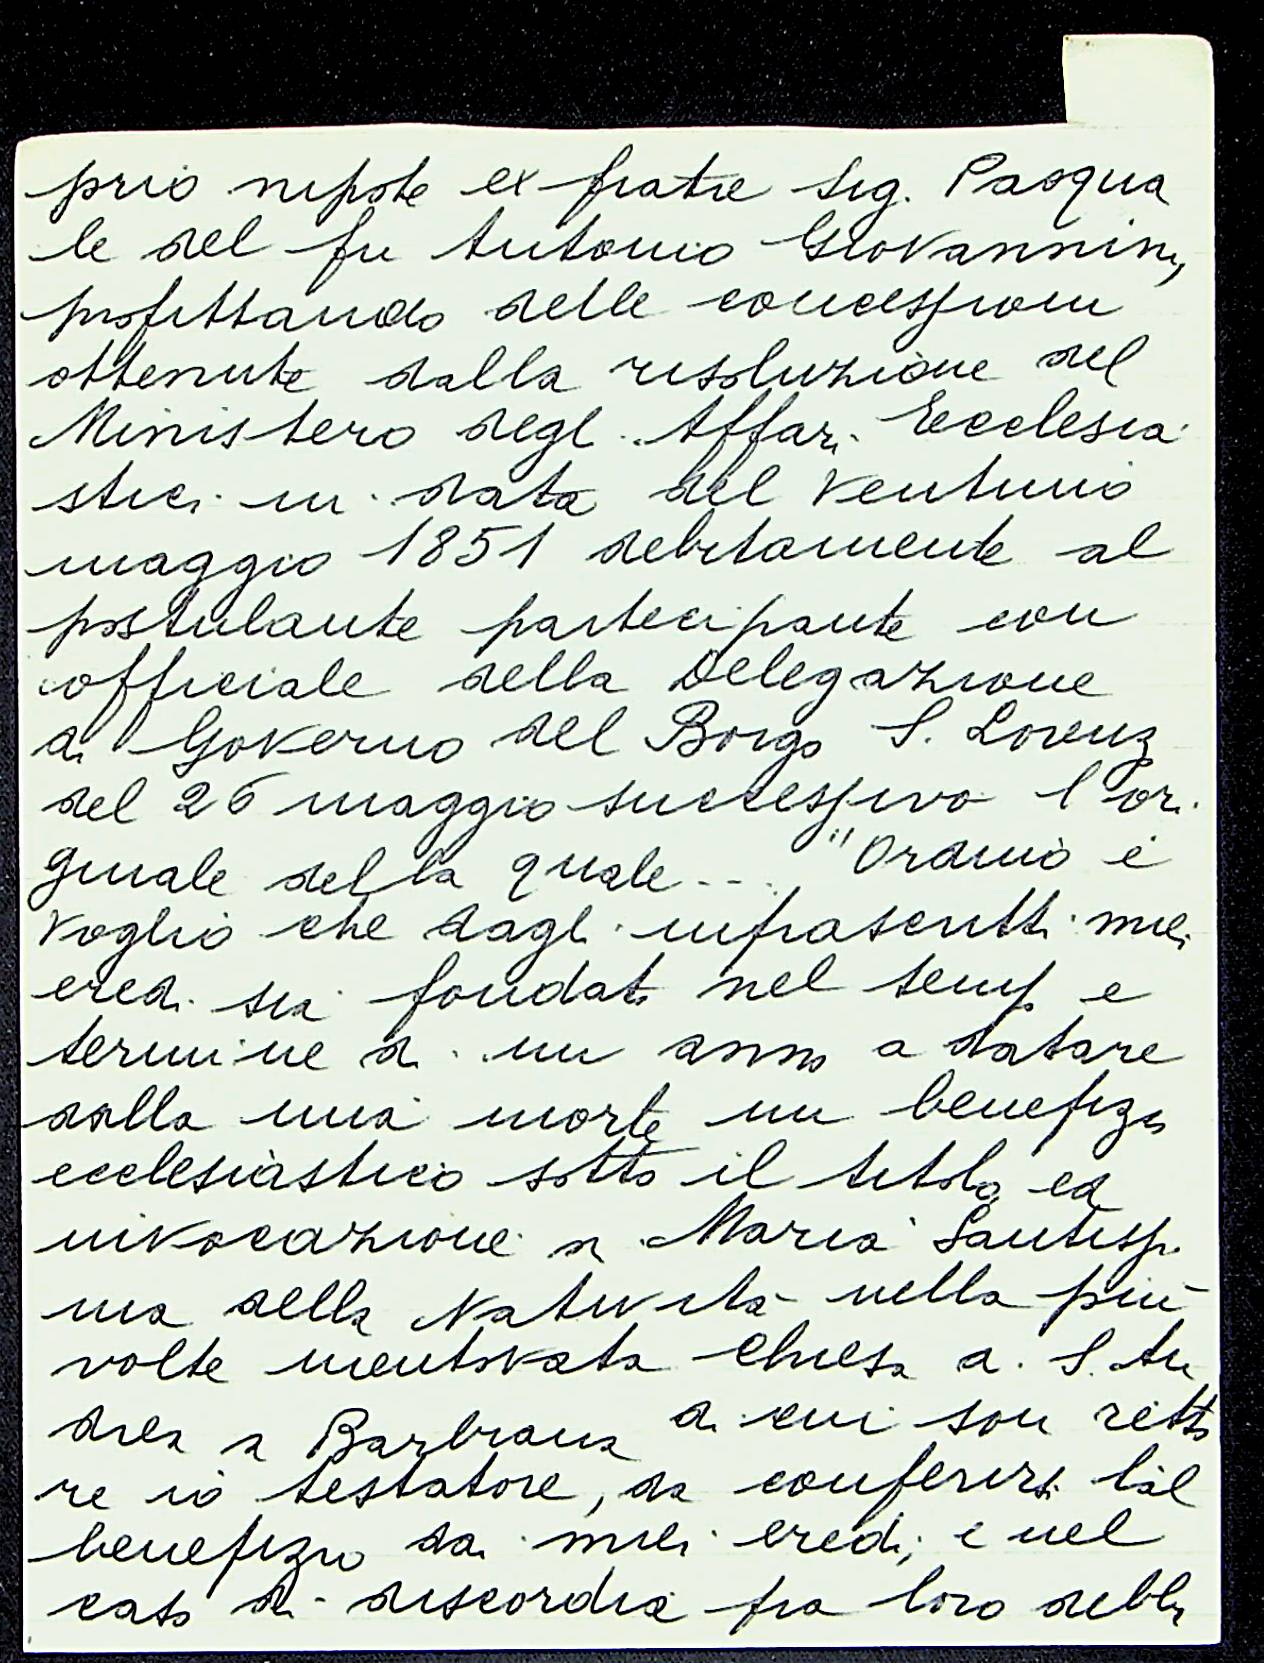 prio nipote ex fratre Sig. Pasqua
le del fu Antonio Giovannini,
profittando delle concessioni
ottenute dalla risoluzione del
Ministero degli Affari Ecclesia
stici in data del ventuno
maggio 1851 debitamente al
postulante partecipante con
officiale della Delegazione
di Governo del Borgo S. Lorenzo
del 26 maggio successivo l'ori
ginale della quale... "Ordino e
voglio che dagli infrascritti miei
eredi sia fondato nel tempo e
termine di un anno a datare
dalla mia morte un benefizio
ecclesiastico sotto il titolo ed
invocazione di Maria Santissi
ma della Natività nella più
volte mentovata Chiesa di S. An
drea a Barbiana di cui son retto
re io testatore, da conferirsi tal
benefizio dai miei eredi; e nel
caso di discordia fra loro debba